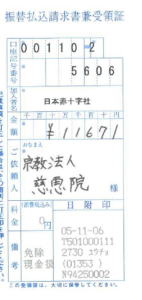 振替払込請求書兼受領証
口座記号番号
00110=2
5606
加入者名
日本赤十字社
金額
千百十万千百十円
¥11671
ご依頼人
おなまえ
宗教法人
慈恩院
様
料金
(消費税込み)
円
日附印
備考
免除
現金扱
05-11-06
T501000111
2730 ユウチョ
(01353 )
N94250002
この受領証は、大切に保管してください。